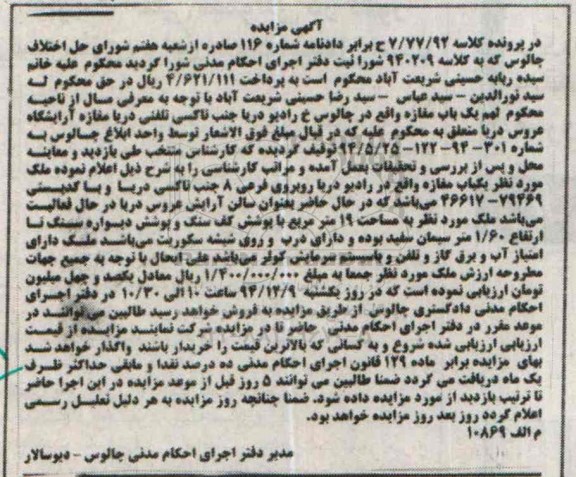 آگهی مزایده
در پرونده کلاسه ۷/۷۷/۹۲ ح برابر دادنامه شماره ۱۱۶ صادره ازشعبه هفتم شورای حل اختلاف
چالوس که به کلاسه ۹۴۰۲۰۹ شورا ثبت دفتر اجرای احکام مدنی شورا گردید محکوم علیه خانم
سیده ربابه حسینی شریعت آباد محکوم است به پرداخت ۴/۶۲۱/۱۱۱ ریال در حق محکوم له
سید نورالدین – سید عباس – سید رضا حسینی شریعت آباد با توجه به معرفی مال از ناحیه
محکوم لهم یک باب مغازه واقع در چالوس خ رادیو دریا جنب تاکسی تلفنی دریا مغازه آرایشگاه
عروس دریا متعلق به محکوم علیه که در قبال مبلغ فوق الاشعار توسط واحد ابلاغ چالوس به
شماره ۳۰۱-۹۴-۱۲۲-۹۴/۵/۲۵ توقیف گردیده که کارشناس منتخب طی بازدید و معاینه
محل و پس از بررسی و تحقیقات بعمل آمده و مراتب کارشناسی را به شرح ذیل اعلام نموده ملک
مورد نظر یکباب مغازه واقع در رادیو دریا روبروی فرعی ۸ جنب تاکسی دریا و با کدپستی
۷۹۴۶۹-۴۶۶۱۷ میباشد که در حال حاضر بعنوان سالن آرایش عروس دریا در حال فعالیت
می‌باشد ملک مورد نظر به مساحت ۱۹ متر مربع با پوشش کف سنگ و پوشش دیواره سنگ تا
ارتفاع ۱/۶۰ متر سیمان سفید بوده و دارای درب و روی شیشه سکوریت می‌باشد ملک دارای
امتیاز آب و برق گاز و تلفن و باسیستم سرمایش کولر می‌باشد علی ایحال با توجه به جمیع جهات
مطروحه ارزش ملک مورد نظر جمعا به مبلغ ۱/۴۰۰/۰۰۰/۰۰۰ ریال معادل یکصد و چهل میلیون
تومان ارزیابی نموده است که در روز یکشنبه ۹۴/۱۲/۹ ساعت ۱۰ الی ۱۰/۳۰ در دفتر اجرای
احکام مدنی دادگستری چالوس از طریق مزایده به فروش خواهد رسید طالبین می توانند در
موعد مقرر در دفتر اجرای احکام مدنی حاضر تا در مزایده شرکت نمایند مزایده از قیمت
ارزیابی ارزیابی شده شروع و به کسانی که بالاترین قیمت را خریدار باشند واگذار خواهد شد
بهای مزایده برابر ماده ۱۲۹ قانون اجرای احکام مدنی ده درصد نقدا و مابقی حداکثر ظرف
یک ماه دریافت می گردد ضمنا طالبین می توانند ۵ روز قبل از موعد مزایده در این اجرا حاضر
تا ترتیب بازدید از مورد مزایده داده شود. ضمنا چنانچه روز مزایده به هر دلیل تعلیل رسمی
اعلام گردد روز بعد روز مزایده خواهد بود.
م الف ۱۰۸۶۹
مدیر دفتر اجرای احکام مدنی چالوس – دیوسالار